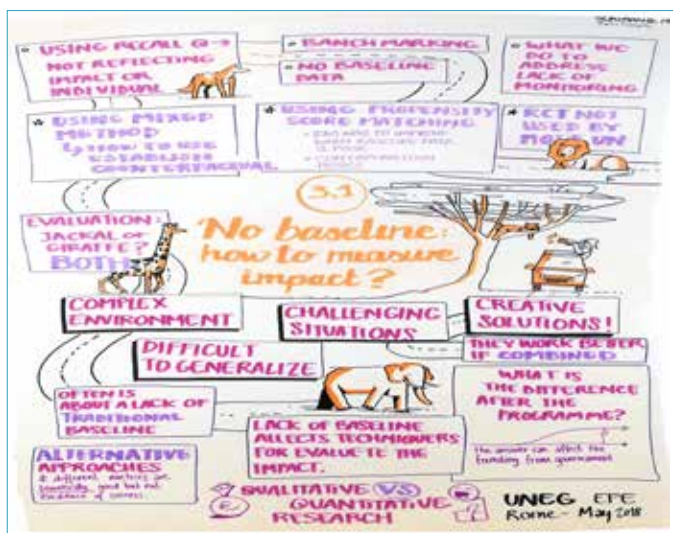 USING RECALL Q →
NOT REFLECTING
IMPACT OR
INDIVIDUAL
BANCH MARKING
NO BASELINE
DATA
WHAT WE
DO TO
ADDRESS
LACK OF
MONITORING
USING MIXED
METHOD
HOW TO USE
ESTABLISH
COUNTERFACTUAL
USING PROPENSITY
SCORE MATCHING
RCT NOT
USED BY
UN
3.1
'No baseline:
how to measure
impact?
EVALUATION:
JACKAL OR
GIRAFFE?
BOTH
COMPLEX
ENVIRONMENT
CHALLENGING
SITUATIONS
CREATIVE
SOLUTIONS!
DIFFICULT
TO GENERALIZE
THEY WORK BETTER
IF COMBINED
OFTEN IS
ABOUT A LACK OF
TRADITIONAL
BASELINE
LACK OF BASELINE
AFFECTS TECHNIQUERS
FOR EVALUETE THE
IMPACT.
WHAT IS
THE DIFFERENCE
AFTER THE
PROGRAMME?
The answer can affect the
funding from government
ALTERNATIVE
APPROACHES
QUALITATIVE VS
QUANTITATIVE
RESEARCH
UNEG EPE
Rome - May 2018